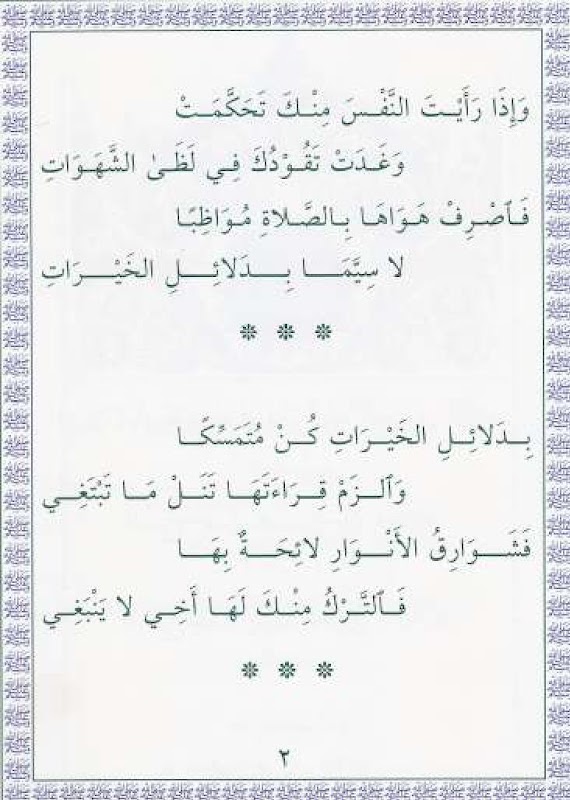 وَإِذَا رَأَيْتَ النَّفْسَ مِنْكَ تَحَكَّمَتْ
وَغَدَتْ تَقُوْدُكَ فِي لَظَىٰ الشَّهَوَاتِ
فَٱصْرِفْ هَوَاهَا بِالصَّلَاةِ مُوَاظِبًا
لا سِيَّمَا بِدَلائِلِ الخَيْرَاتِ
بِدَلائِلِ الخَيْرَاتِ كُنْ مُتَمَسِّكًا
وَٱلزَمْ قِرَاءَتَهَا تَنَلْ مَا تَبْتَغِي
فَشَوَارِقُ الأَنْوَارِ لائِحَةٌ بِهَا
فَٱلتَّرْكُ مِنْكَ لَهَا أَخِي لا يَنْبَغِي
٢